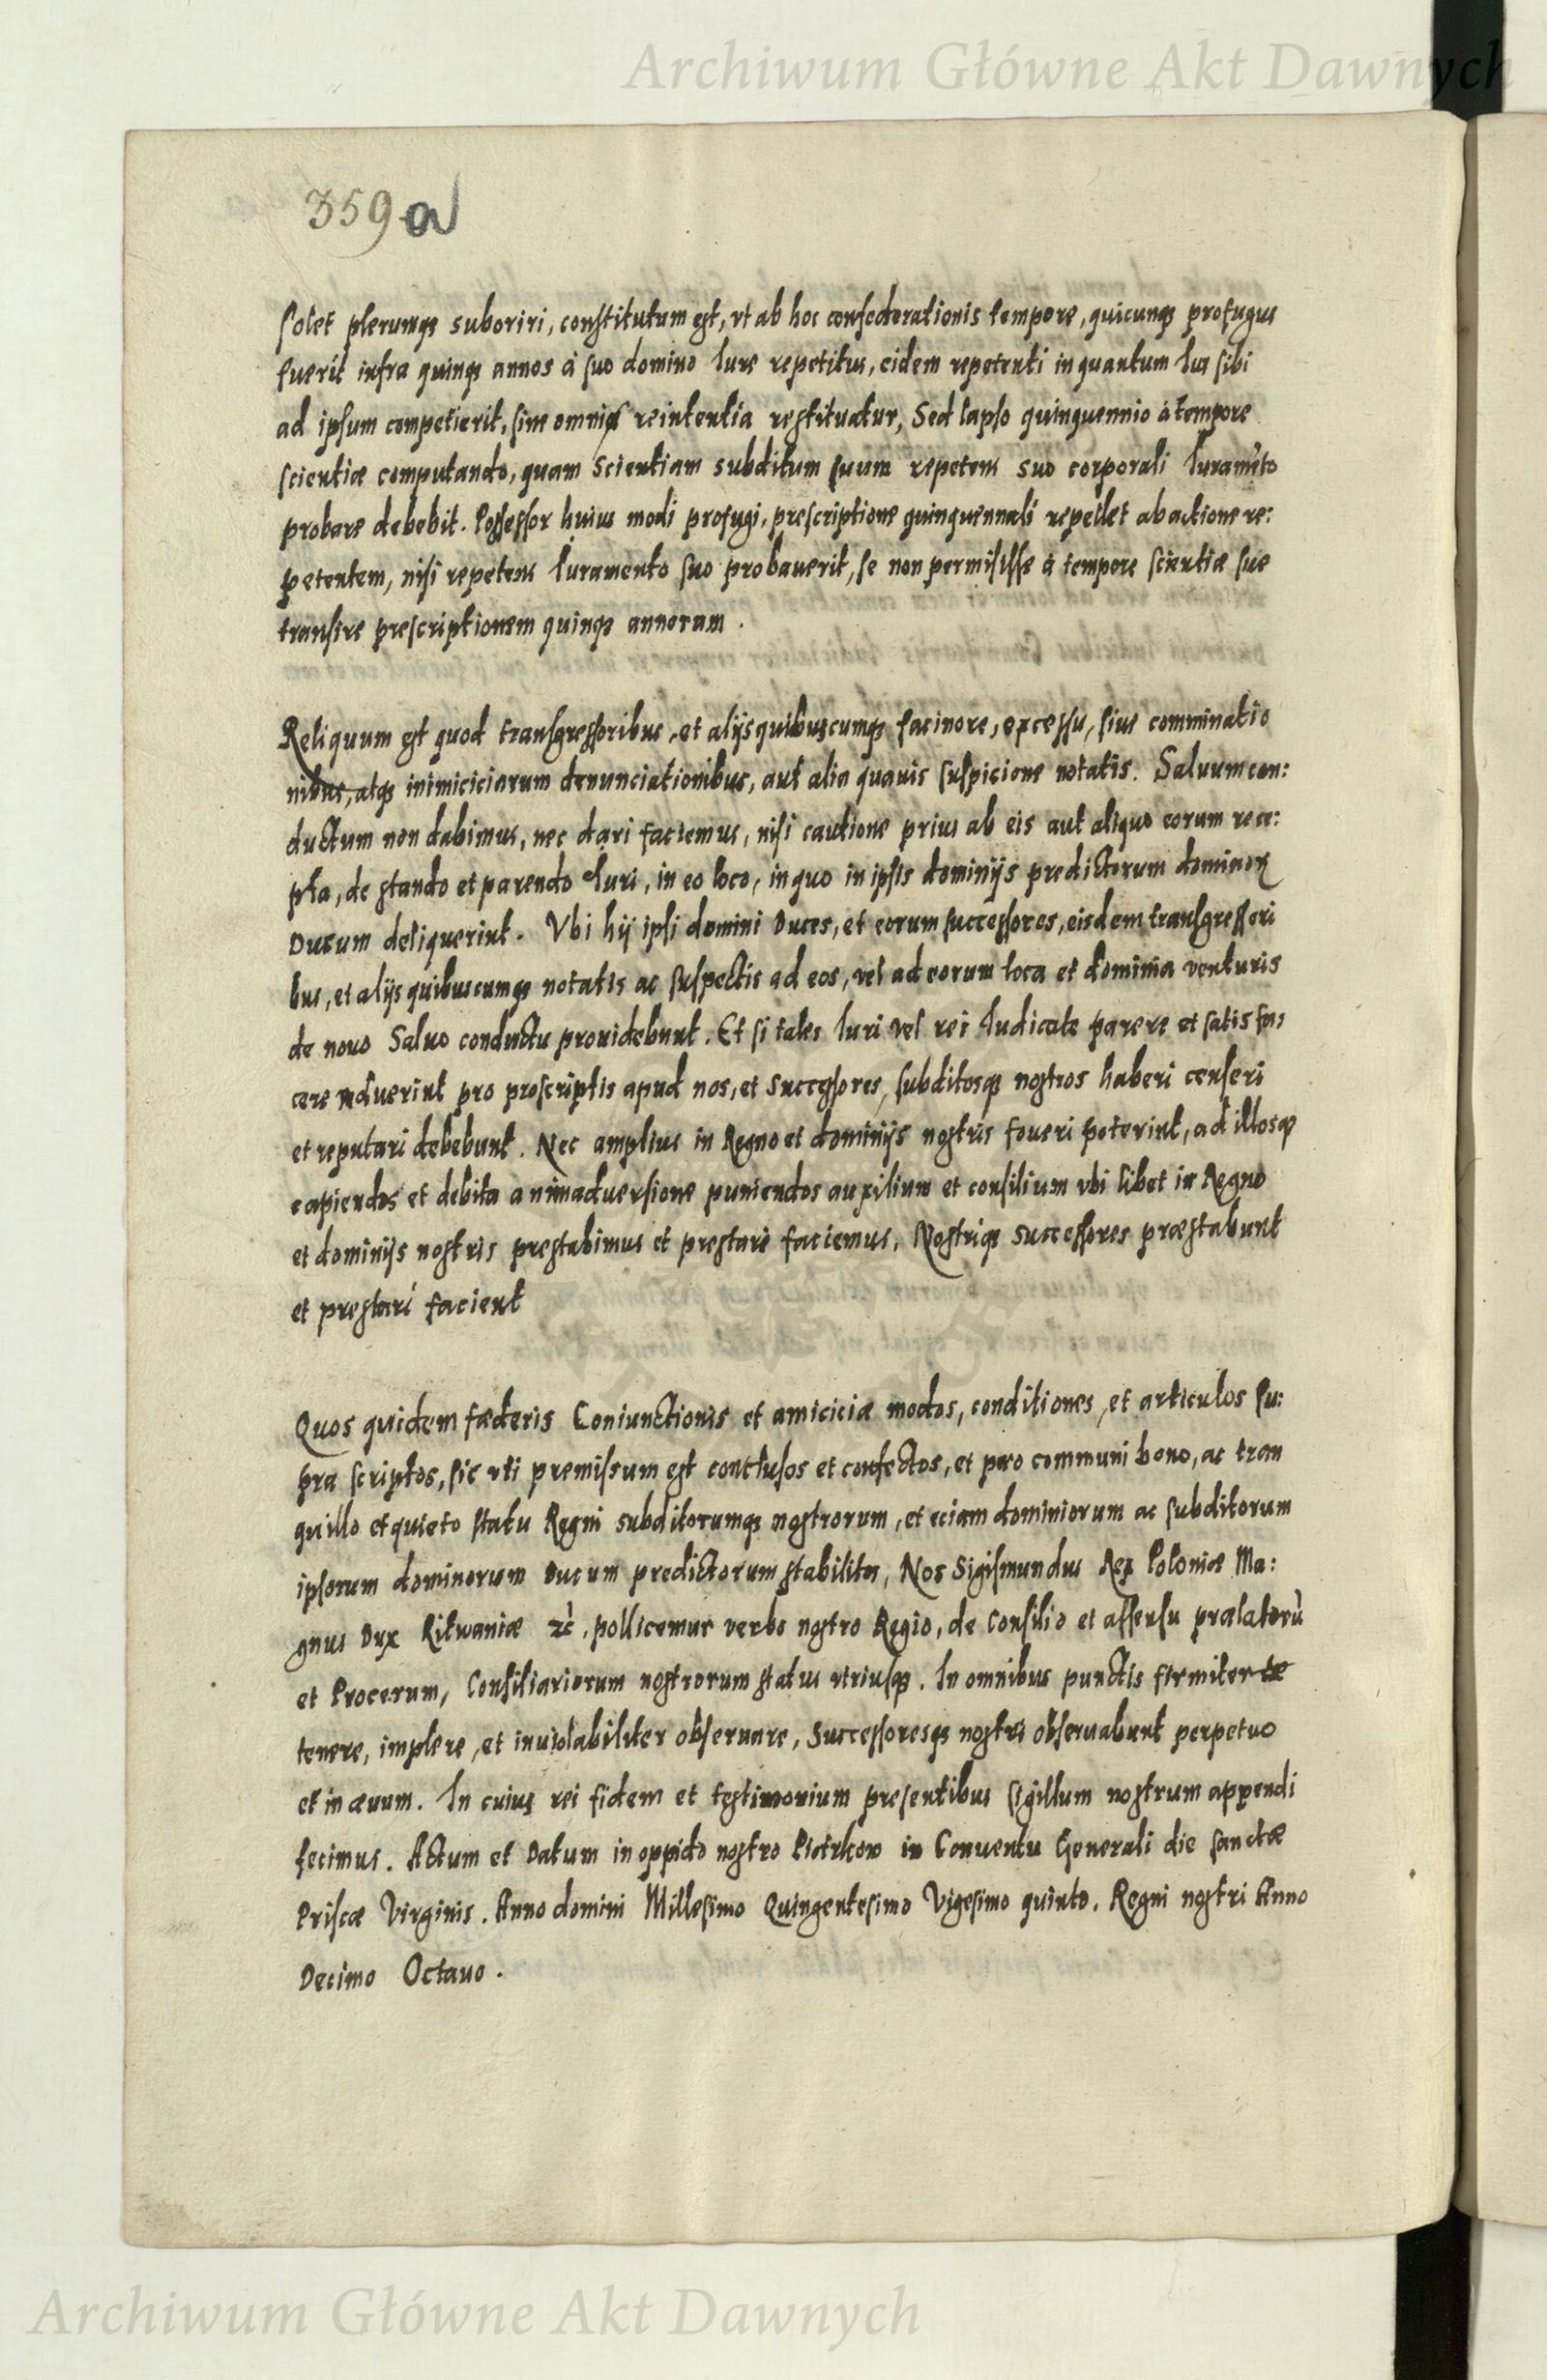 Archiwum Główne Akt Dawnych
359 a
solet plerumqȝ suboriri, constitutum est, vt ab hoc confederationis tempore, quicunqȝ profugus
fuerit infra quinqȝ annos à suo domino Iure repetitus, eidem repetenti in quantum Ius sibi
ad ipsum competierit, sine omni reintentia restituatur, Sed lapso quinquennio à tempore
scientiæ computando, quam scientiam subditum suum repetens suo corporali Iuramẽto
probare debebit. Possessor huius modi profugi, prescriptione quinquennali repellet ab actione re:
petentem, nisi repetens Iuramento suo probauerit, se non permisisse à tempore scientiæ sue
transire prescriptionem quinqȝ annorum.
Reliquum est quod transgressoribus, et alijs quibuscumqȝ facinore, excessu, siue comminatio
nibus, atqȝ inimiciciarum denunciationibus, aut alia quauis suspicione notatis. Saluum con:
ductum non dabimus, nec dari faciemus, nisi cautione prius ab eis aut aliquo eorum rece:
pta, de stando et parendo Iuri, in eo loco, in quo in ipsis dominijs predictorum dominoꝝ
Ducum deliquerint. Vbi hij ipsi domini Duces, et eorum successores, eisdem transgressori
bus, et alijs quibuscumqȝ notatis ac suspectis ad eos, vel ad eorum loca et dominia venturis
de nouo Saluo conductu prouidebunt. Et si tales Iuri vel rei Iudicate parere et satis fa:
cere noluerint pro proscriptis apud nos, et successores, subditosqȝ nostros haberi censeri
et reputari debebunt. Nec amplius in Regno et dominijs nostris foueri poterint, ad illosqȝ
capiendos et debita animaduersione puniendos auxilium et consilium vbi libet in Regno
et dominijs nostris prestabimus et prestari faciemus, Nostriqȝ successores præstabunt
et prestari facient
Quos quidem fæderis Coniunctionis et amiciciæ modos, conditiones, et articulos su:
pra scriptos, sic vti premissum est conclusos et confectos, et pro communi bono, ac tran
quillo et quieto statu Regni subditorumqȝ nostrorum, et eciam dominiorum ac subditorum
ipsorum dominorum Ducum predictorum stabilitos, Nos Sigismundus Rex Poloniæ Ma:
gnus Dux Litwaniæ ꝛc̀. pollicemur verbo nostro Regio, de Consilio et assensu prælatorũ
et Procerum, Consiliariorum nostrorum status vtriusqȝ. In omnibus punctis firmiter te
tenere, implere, et inuiolabiliter obseruare, Successoresqȝ nostri obseruabunt perpetuo
et in æuum. In cuius rei fidem et testimonium presentibus sigillum nostrum appendi
fecimus. Actum et Datum in oppido nostro Piotrkow in Conuentu Generali die sanctæ
Priscæ Virginis. Anno domini Millesimo Quingentesimo Vigesimo quinto. Regni nostri Anno
Decimo Octauo.
Archiwum Główne Akt Dawnych